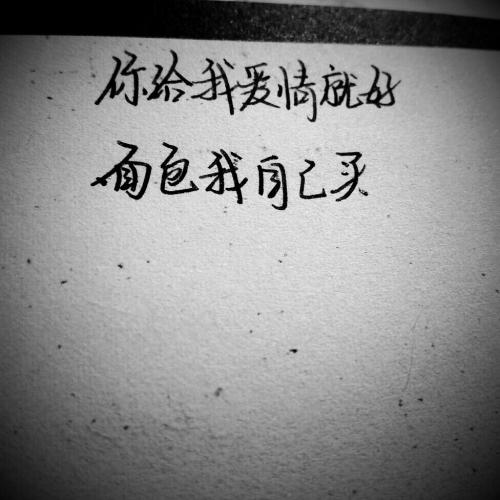 你给我爱情就好
面包我自己买